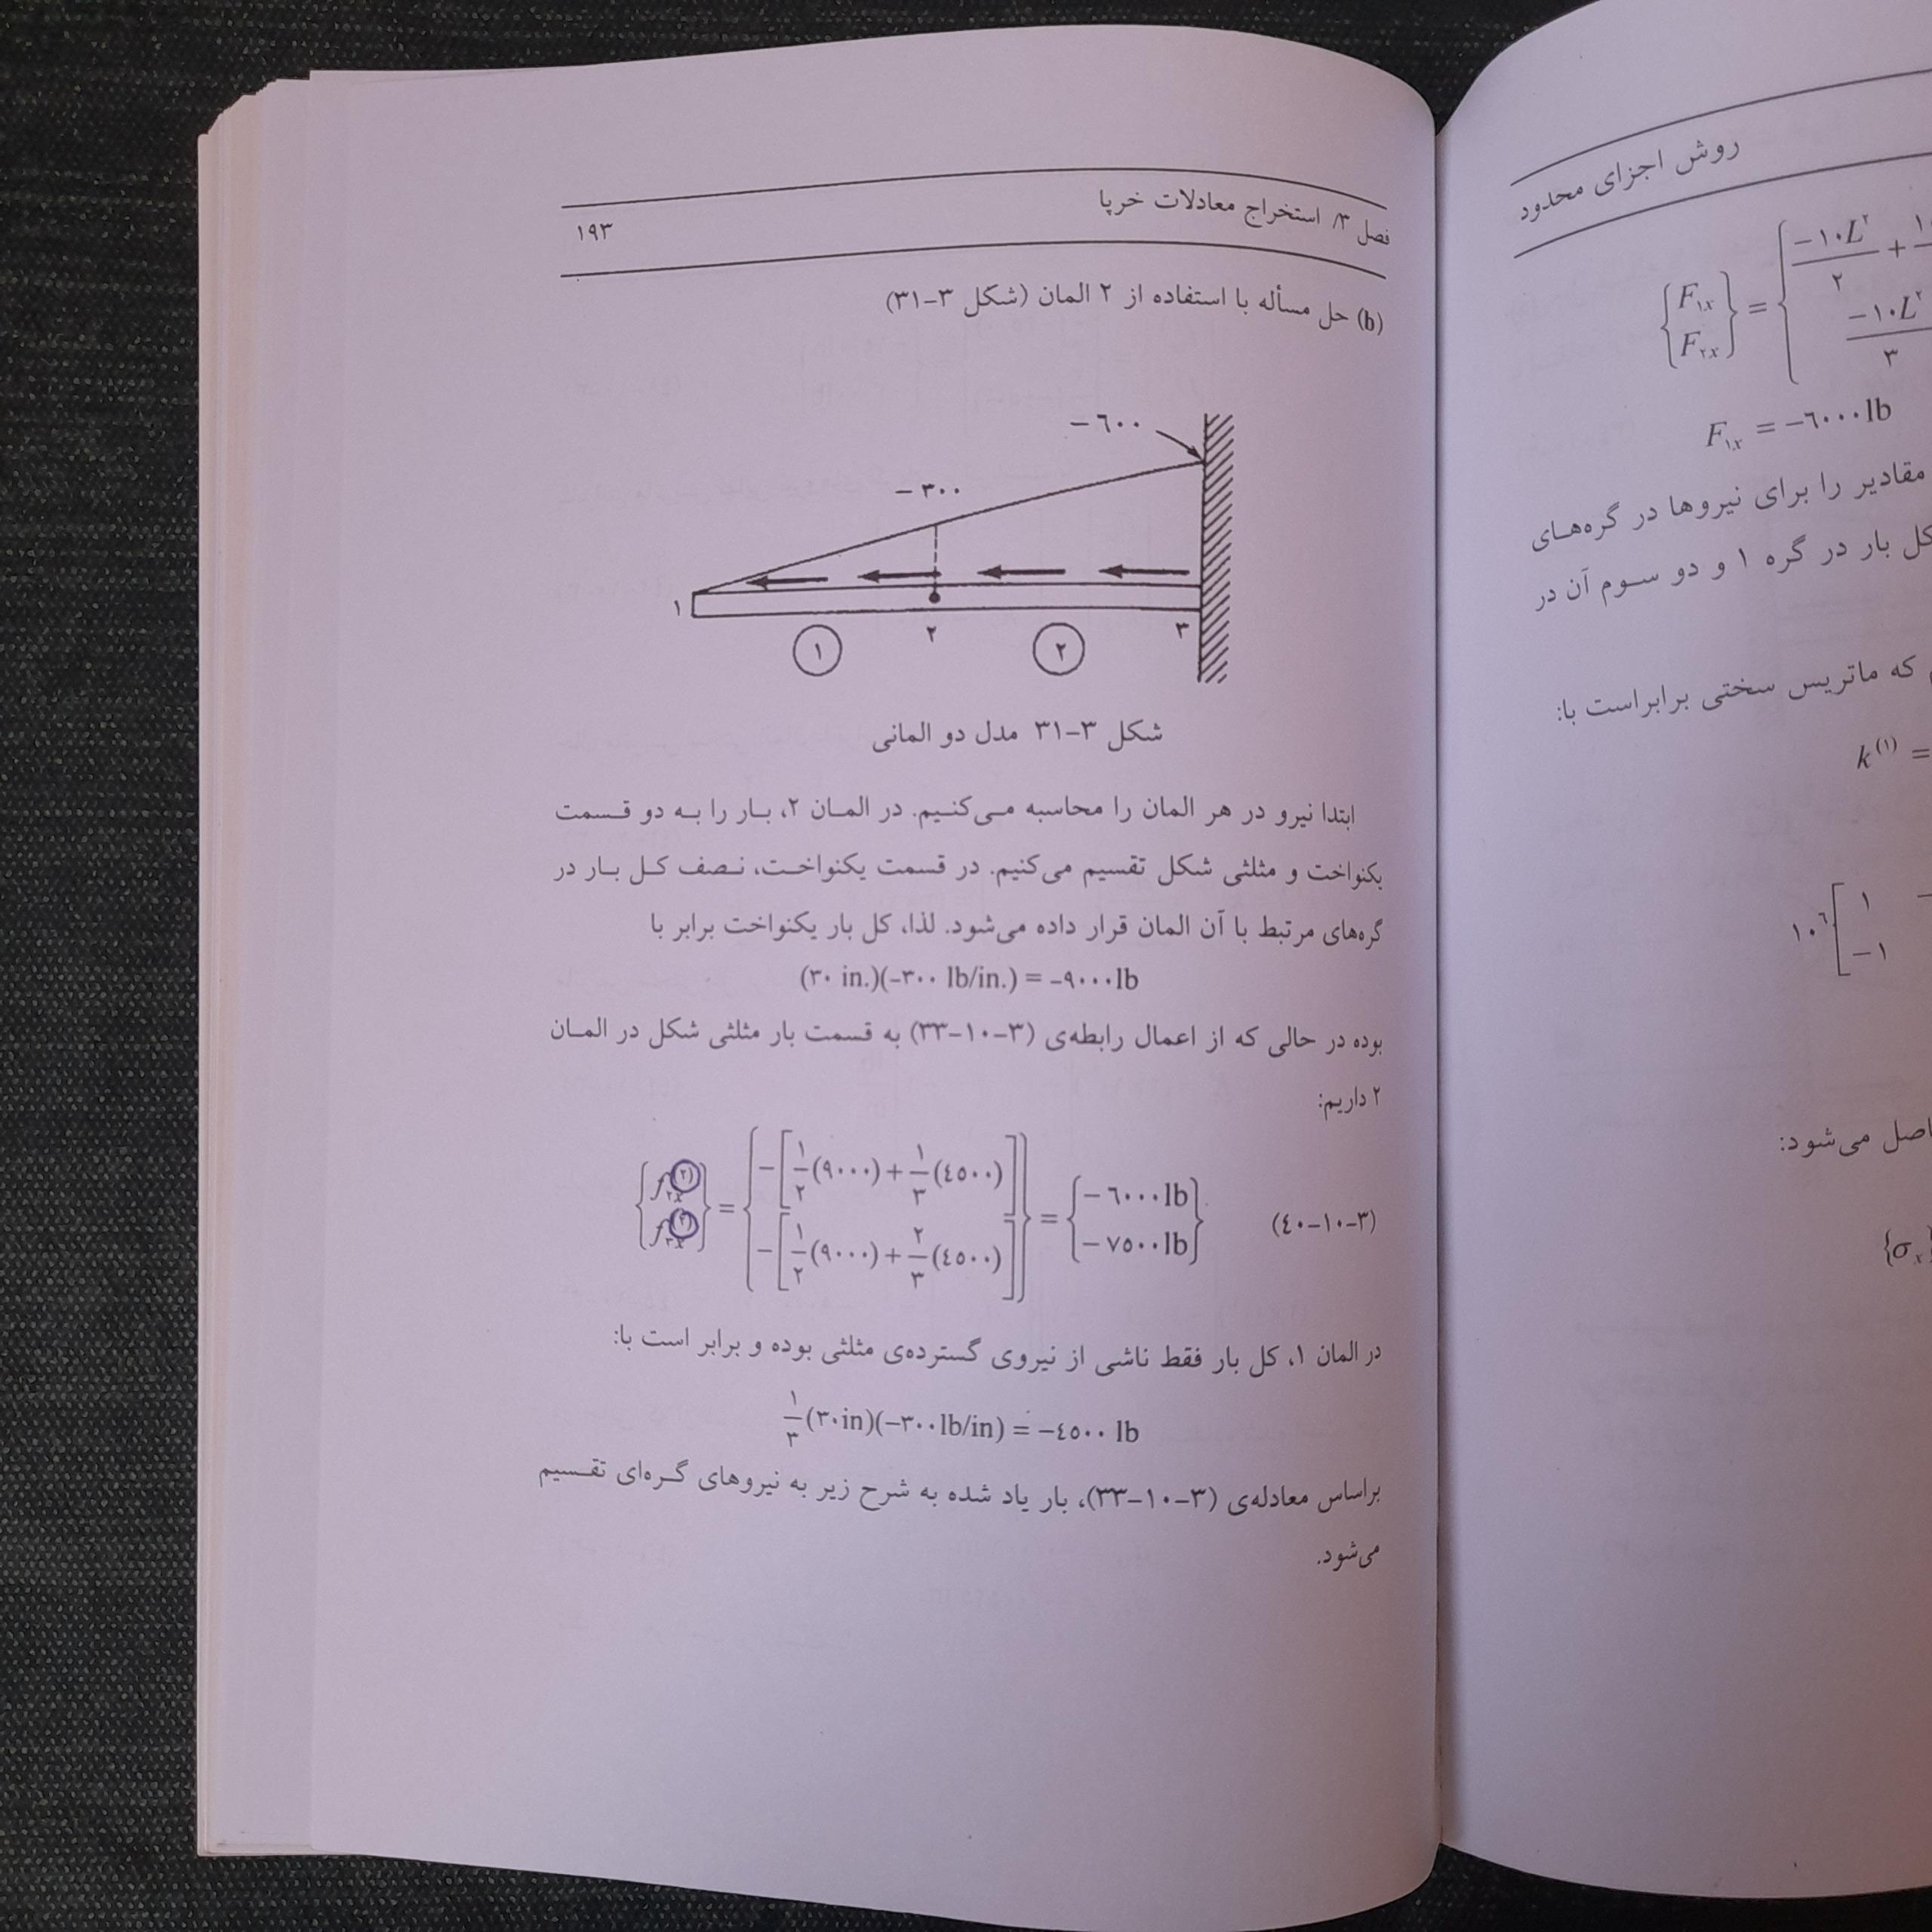 فصل ۳/ استخراج معادلات خرپا
۱۹۳
(b) حل مسأله با استفاده از ۲ المان (شکل ۳-۳۱)
-۶۰۰
-۳۰۰
۱
۲
۳
۱
۲
شکل ۳-۳۱ مدل دو المانی
ابتدا نیرو در هر المان را محاسبه می‌کنیم. در المان ۲، بار را به دو قسمت
یکنواخت و مثلثی شکل تقسیم می‌کنیم. در قسمت یکنواخت، نصف کل بار در
گره‌های مرتبط با آن المان قرار داده می‌شود. لذا، کل بار یکنواخت برابر با
(۳۰ in.)(-۳۰۰ lb/in.) = -۹۰۰۰lb
بوده در حالی که از اعمال رابطه‌ی (۳-۱۰-۳۳) به قسمت بار مثلثی شکل در المان
۲ داریم:
{f₂ₓ⁽۲⁾ f₃ₓ⁽۲⁾} = {-[۱/۲(۹۰۰۰)+۱/۳(۴۵۰۰)] -[۱/۲(۹۰۰۰)+۲/۳(۴۵۰۰)]} = {-۶۰۰۰lb -۷۵۰۰lb} (۳-۱۰-۴۰)
در المان ۱، کل بار فقط ناشی از نیروی گسترده‌ی مثلثی بوده و برابر است با:
۱/۳(۳۰in)(-۳۰۰lb/in) = -۴۵۰۰ lb
براساس معادله‌ی (۳-۱۰-۳۳)، بار یاد شده به شرح زیر به نیروهای گره‌ای تقسیم
می‌شود.
روش اجزای محدود
{F₁ₓ F₂ₓ} = {-۱۰L²/۲ + -۱۰L²/۳
F₁ₓ = -۶۰۰۰lb
مقادیر را برای نیروها در گره‌های
کل بار در گره ۱ و دو سوم آن در
که ماتریس سختی برابراست با:
k⁽۱⁾ =
۱۰⁶[۱ - -۱
می‌شود:
{σₓ}